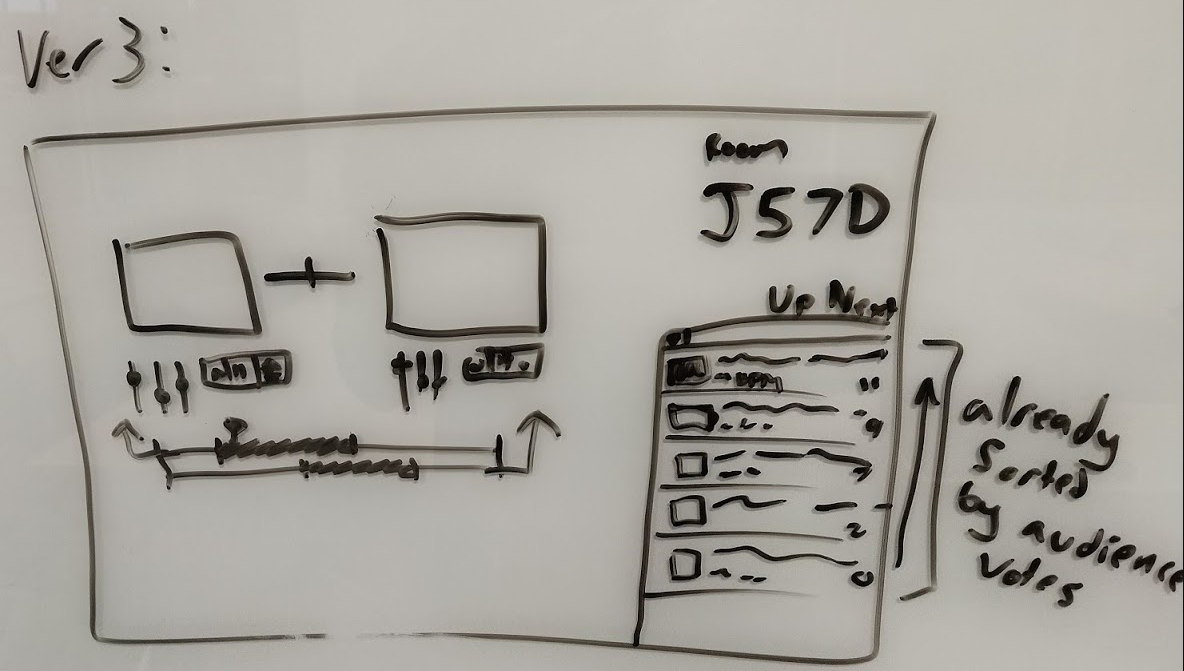 Ver 3:
Room
J57D
Up Next
11
9
7
2
0
already
sorted
by audience
votes